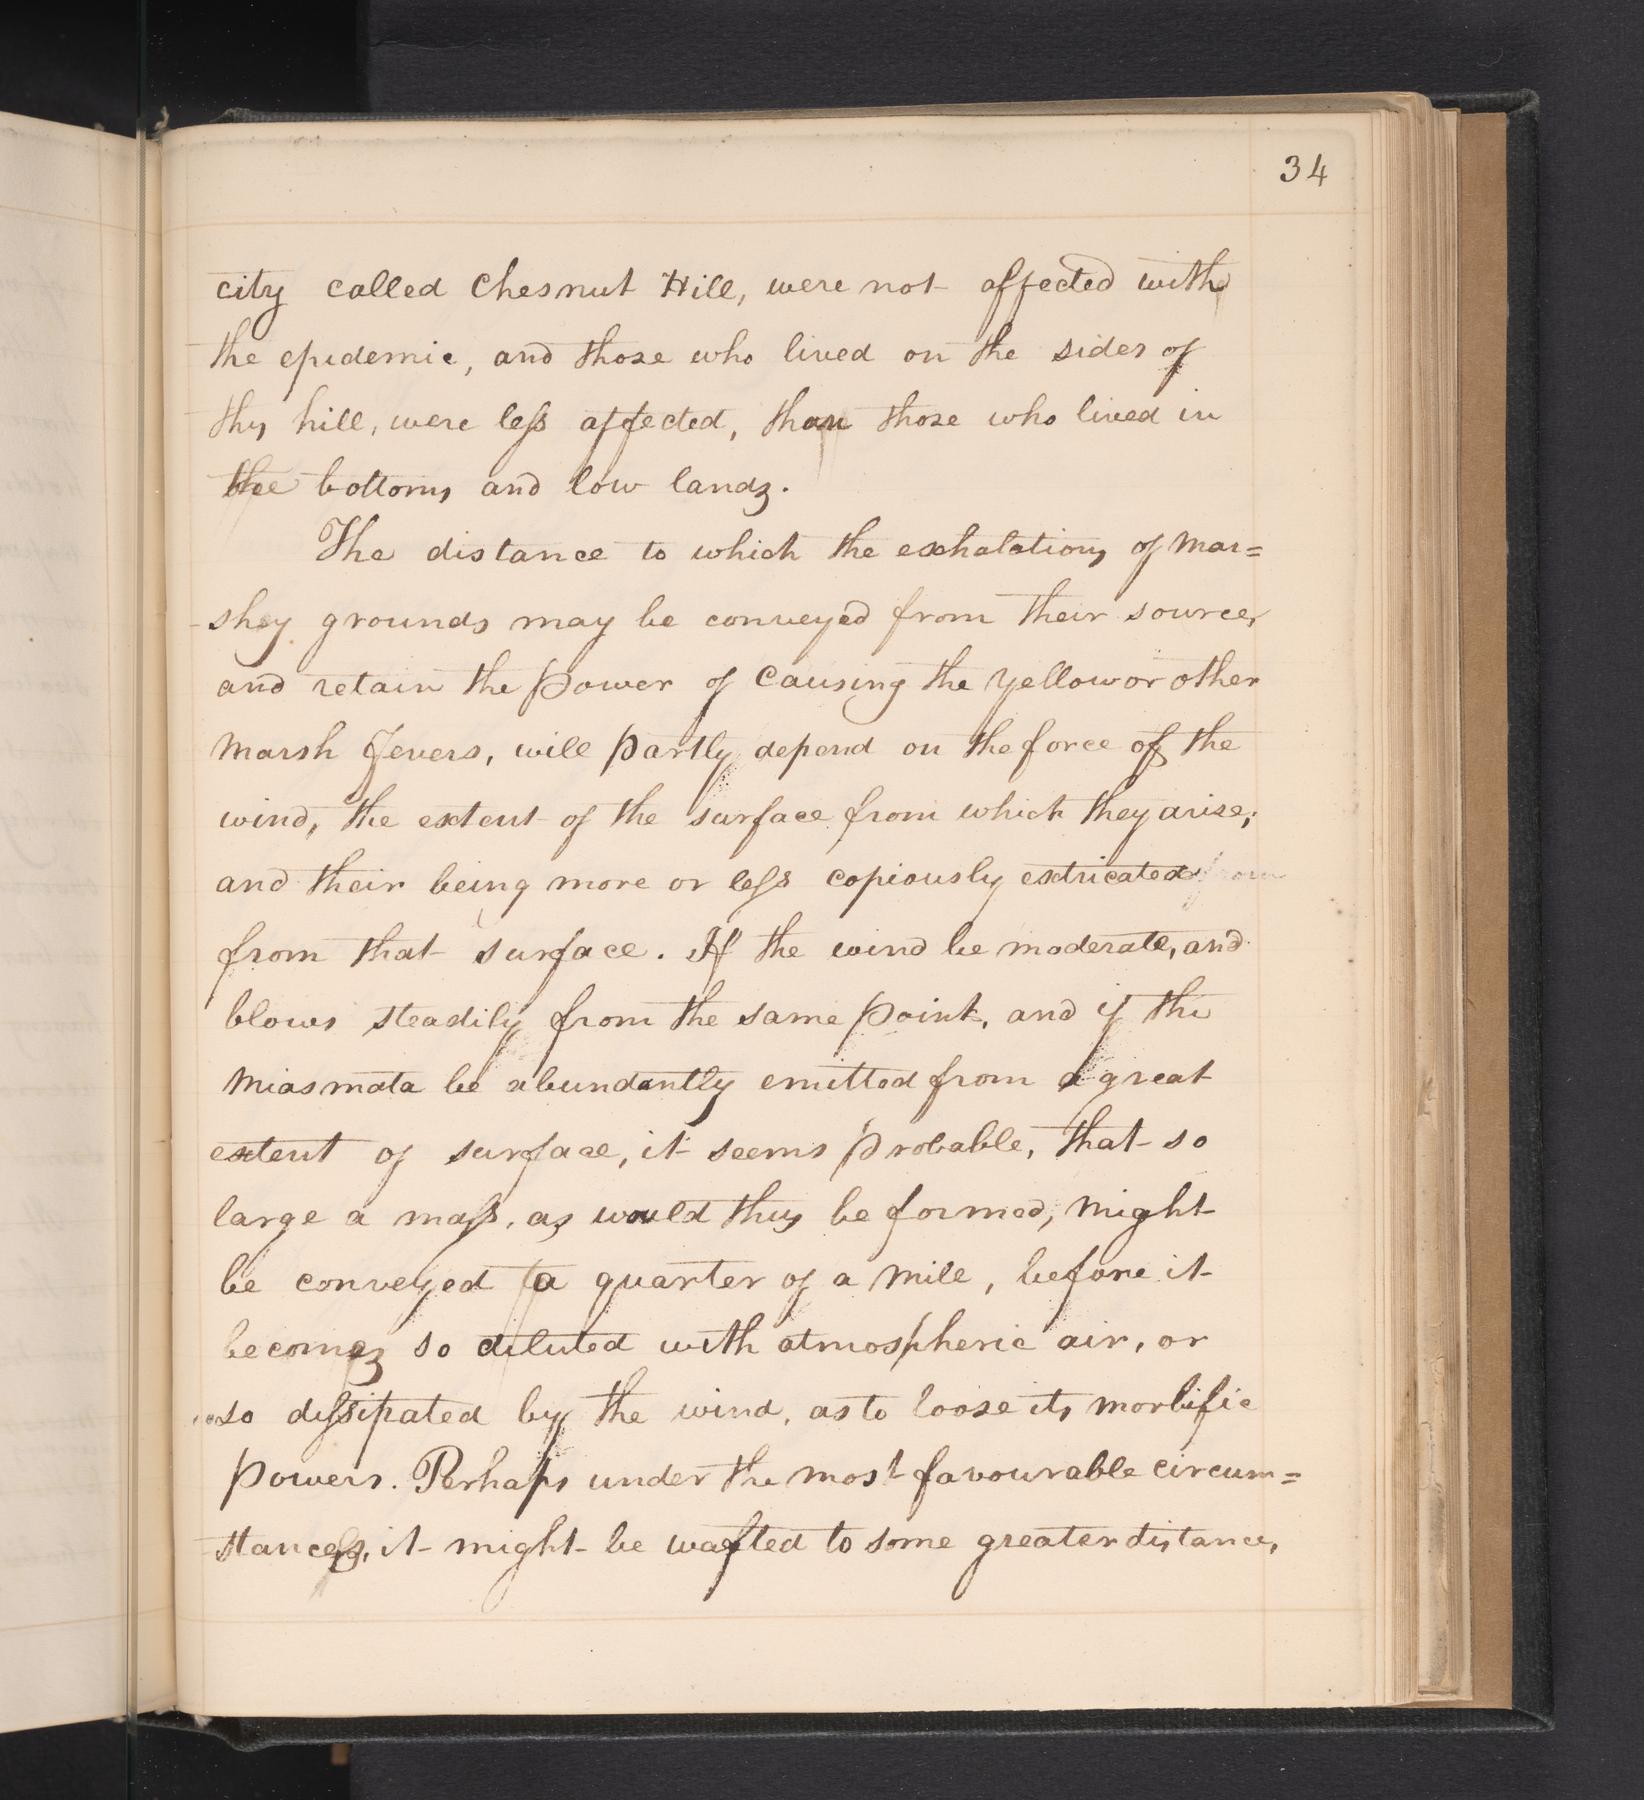 34
city called Chesnut Hill, were not affected with
the epidemic, and those who lived on the sides of
this hill, were less affected, than those who lived in
the bottoms and low lands.
The distance to which the exhalations of mar=
shey grounds may be conveyed from their source,
and retain the power of causing the yellow or other
marsh fevers, will partly depend on the force of the
wind, the extent of the surface from which they arise,
and their being more or less copiously extricated from
from that surface. If the wind be moderate, and
blows steadily from the same point, and if the
miasmata be abundantly emitted from a great
extent of surface, it seems probable, that so
large a mass, as would thus be formed, might
be conveyed a quarter of a mile, before it
becomes so diluted with atmospheric air, or
so dissipated by the wind, as to loose its morbific
powers. Perhaps under the most favourable circum=
stances, it might be wafted to some greater distance,